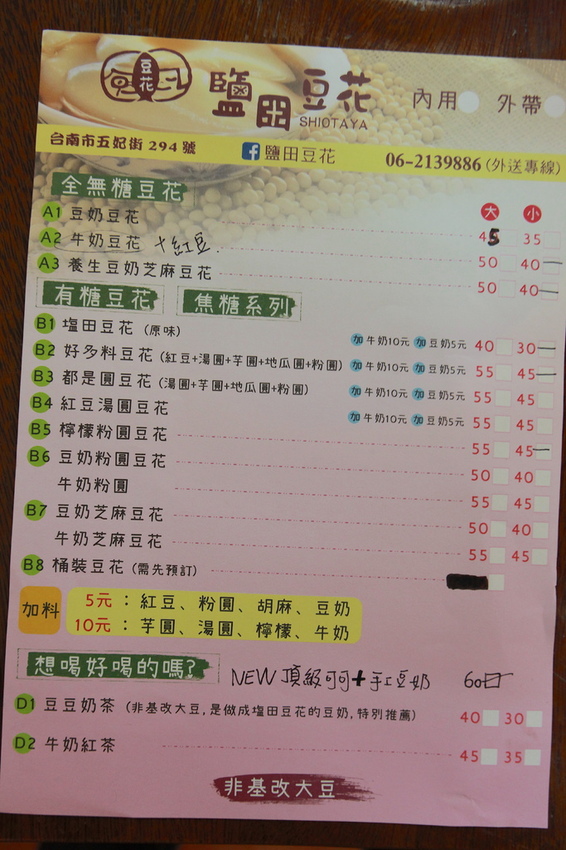 豆花
鹽田豆花
SHIOTAYA
內用 外帶
台南市五妃街294號 鹽田豆花 06-2139886(外送專線)
全無糖豆花 大 小
A1 豆奶豆花 45 35
A2 牛奶豆花 +紅豆. 50 40
A3 養生豆奶芝麻豆花 50 40
有糖豆花 焦糖系列
B1 塩田豆花 (原味) 加 牛奶10元 加 豆奶5元 40 30
B2 好多料豆花 (紅豆+湯圓+芋圓+地瓜圓+粉圓) 加 牛奶10元 加 豆奶5元 55 45
B3 都是圓豆花 (湯圓+芋圓+地瓜圓+粉圓) 加 牛奶10元 加 豆奶5元 55 45
B4 紅豆湯圓豆花 加 牛奶10元 加 豆奶5元 55 45
B5 檸檬粉圓豆花 55 45
B6 豆奶粉圓豆花 50 40
牛奶粉圓 55 45
B7 豆奶芝麻豆花 50 40
牛奶芝麻豆花 55 45
B8 桶裝豆花 (需先預訂)
加料 5元：紅豆、粉圓、胡麻、豆奶
10元：芋圓、湯圓、檸檬、牛奶
想喝好喝的嗎?
NEW 頂級可可+手工豆奶 60
D1 豆豆奶茶 (非基改大豆,是做成塩田豆花的豆奶,特別推薦) 40 30
D2 牛奶紅茶 45 35
非基改大豆